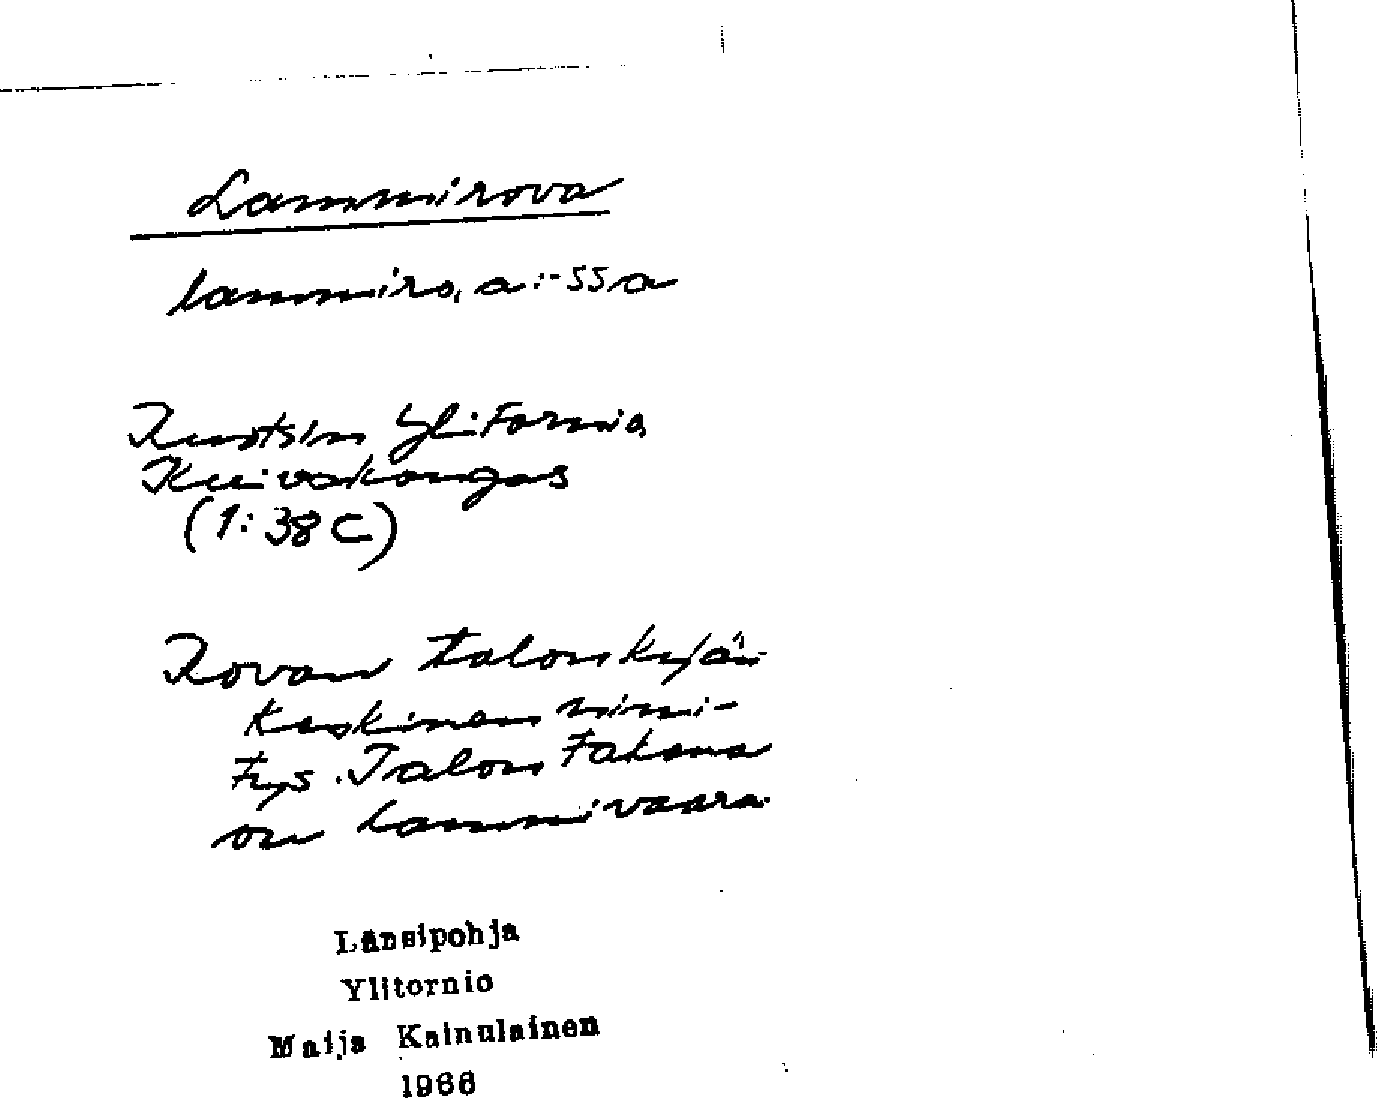 Lammirova
lammiro, a:-ssa
Ruotsin Ylitornio,
Kuivakangas
(1:38 C)
Rovan talonkyän
keskinen nimi-
tys. Talon takana
on Lammivaara.
Länsipohja
Ylitornio
Maija Kainulainen
1966